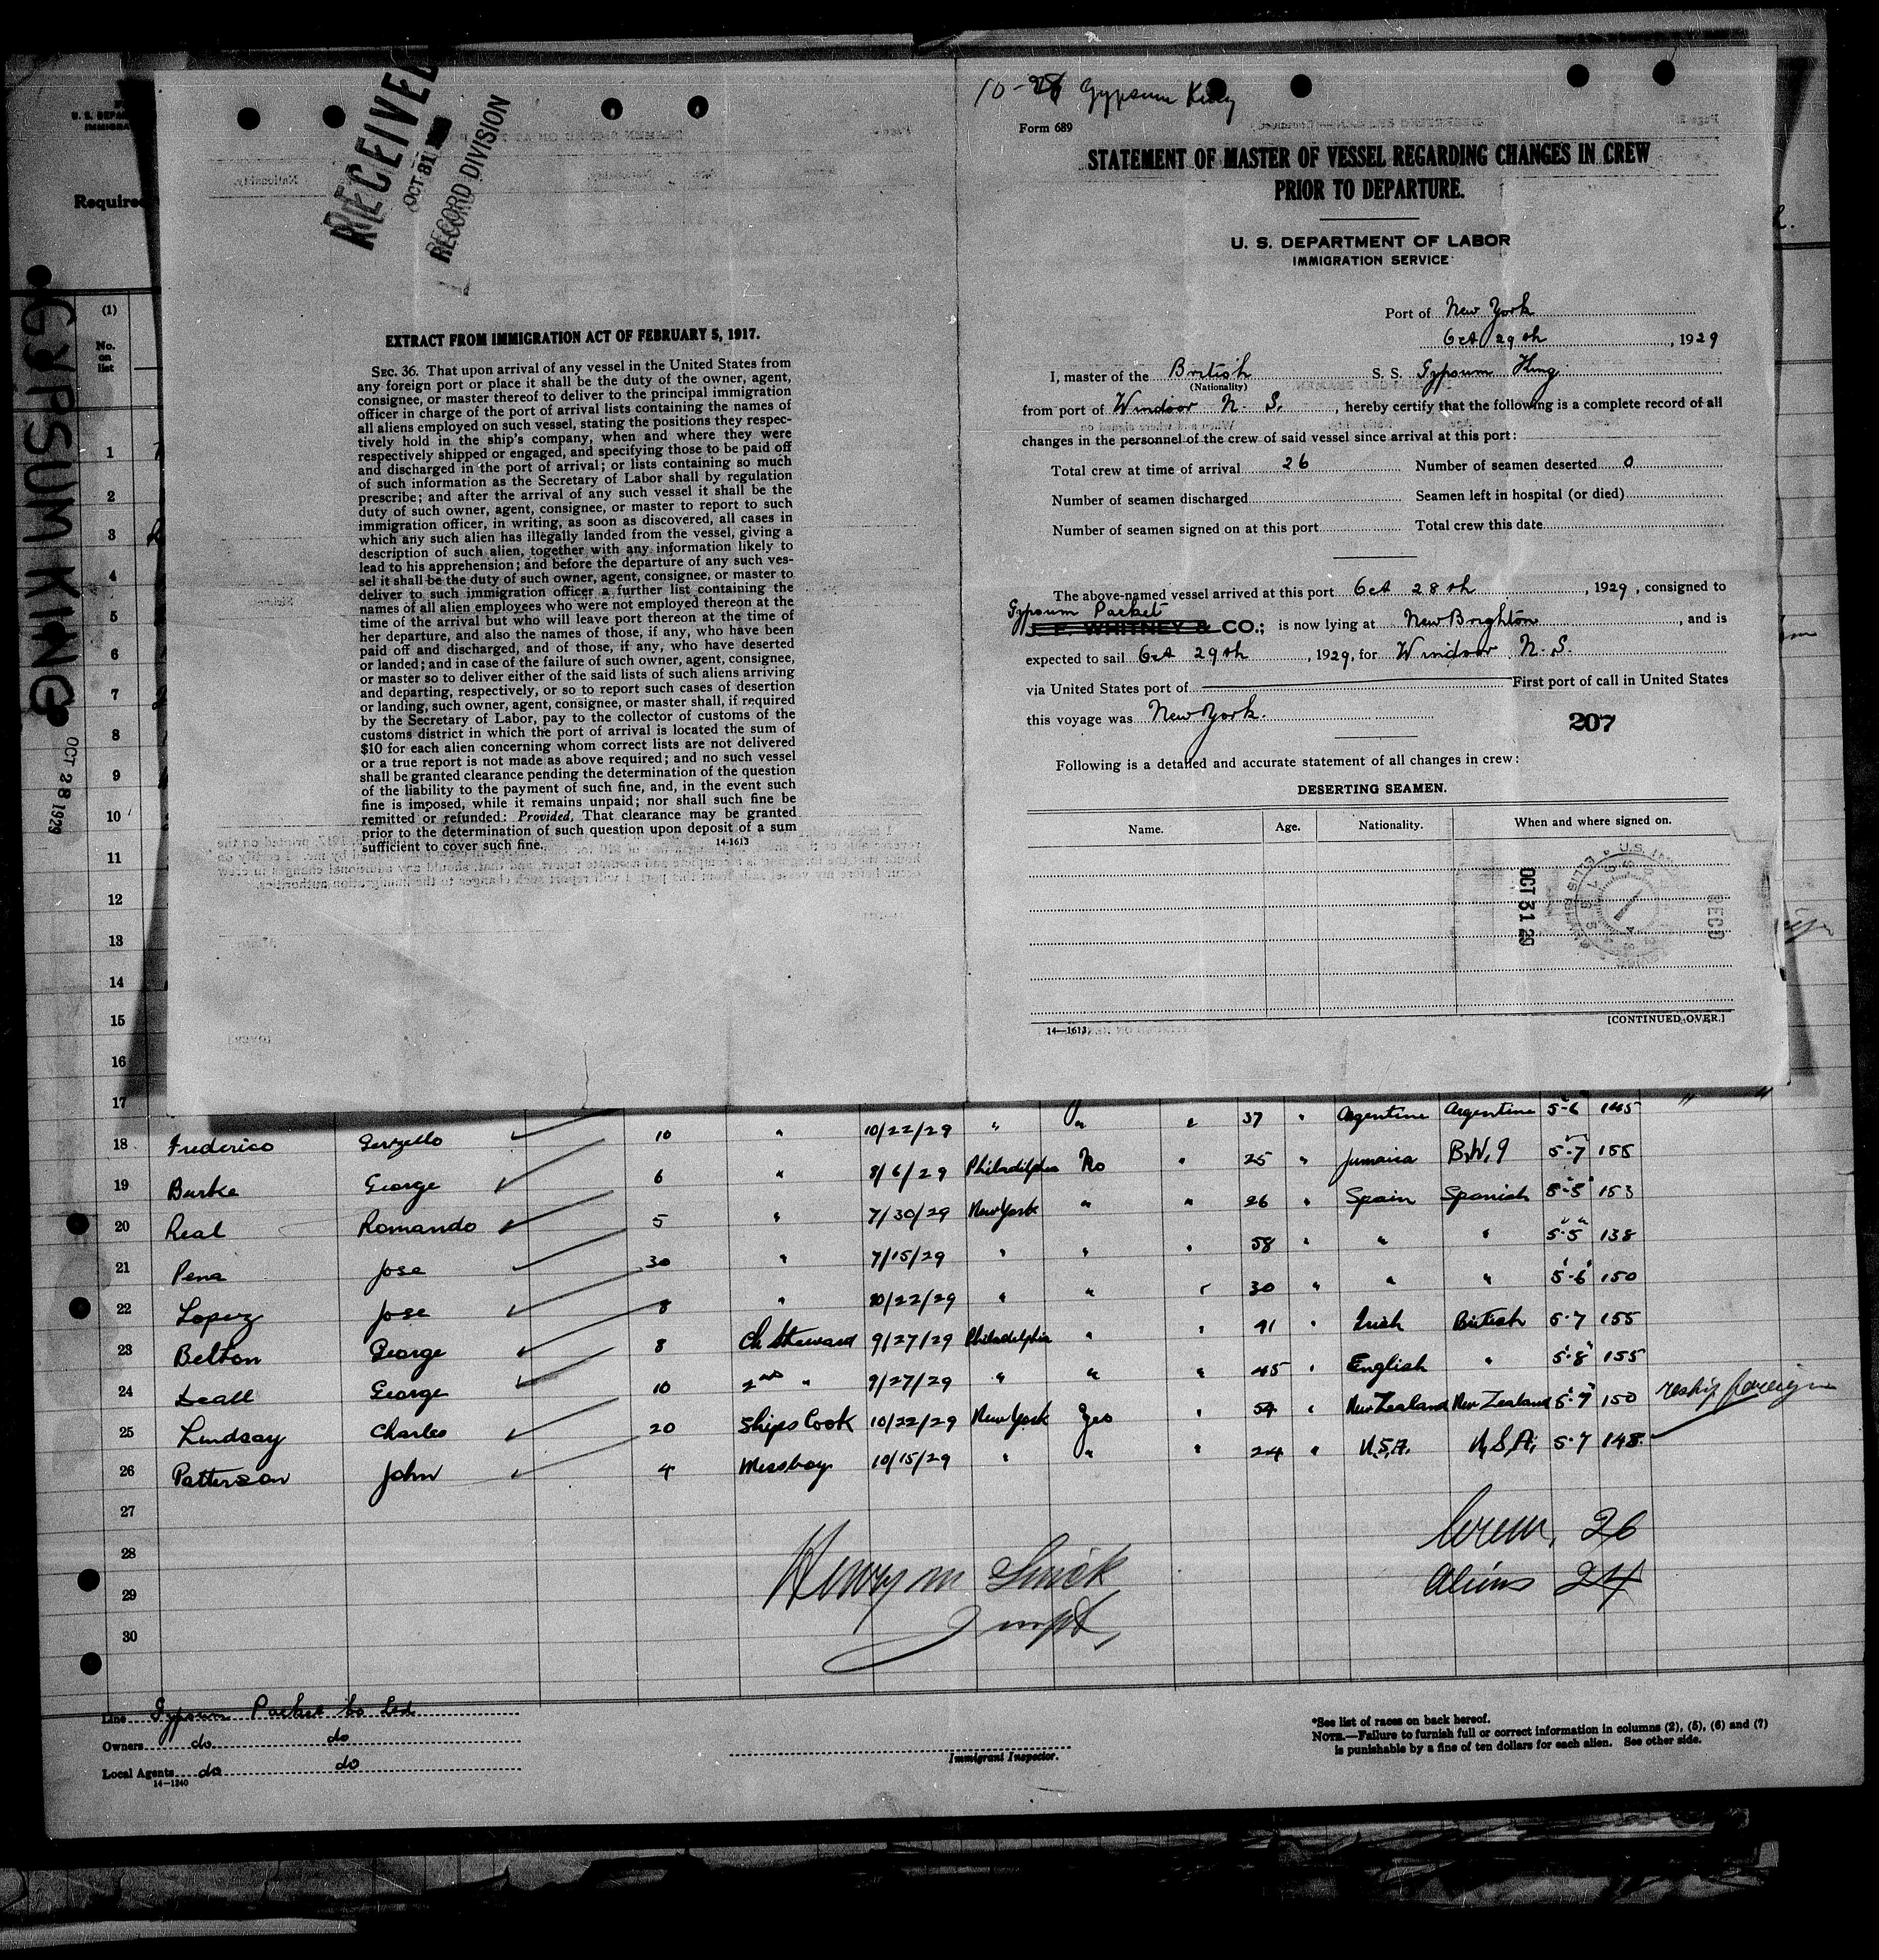 RECEIVED
OCT 31
RECORD DIVISION
EXTRACT FROM IMMIGRATION ACT OF FEBRUARY 5, 1917.
SEC. 36. That upon arrival of any vessel in the United States from
any foreign port or place it shall be the duty of the owner, agent,
consignee, or master thereof to deliver to the principal immigration
officer in charge of the port of arrival lists containing the names of
all aliens employed on such vessel, stating the positions they respec-
tively hold in the ship's company, when and where they were
respectively shipped or engaged, and specifying those to be paid off
and discharged in the port of arrival; or lists containing so much
of such information as the Secretary of Labor shall by regulation
prescribe; and after the arrival of any such vessel it shall be the
duty of such owner, agent, consignee, or master to report to such
immigration officer, in writing, as soon as discovered, all cases in
which any such alien has illegally landed from the vessel, giving a
description of such alien, together with any information likely to
lead to his apprehension; and before the departure of any such ves-
sel it shall be the duty of such owner, agent, consignee, or master to
deliver to such immigration officer a further list containing the
names of all alien employees who were not employed thereon at the
time of the arrival but who will leave port thereon at the time of
her departure, and also the names of those, if any, who have been
paid off and discharged, and of those, if any, who have deserted
or landed; and in case of the failure of such owner, agent, consignee,
or master so to deliver either of the said lists of such aliens arriving
and departing, respectively, or so to report such cases of desertion
or landing, such owner, agent, consignee, or master shall, if required
by the Secretary of Labor, pay to the collector of customs of the
customs district in which the port of arrival is located the sum of
$10 for each alien concerning whom correct lists are not delivered
or a true report is not made as above required; and no such vessel
shall be granted clearance pending the determination of the question
of the liability to the payment of such fine, and, in the event such
fine is imposed, while it remains unpaid; nor shall such fine be
remitted or refunded: Provided, That clearance may be granted
prior to the determination of such question upon deposit of a sum
sufficient to cover such fine. 14-1613
10-28 Gypsum King
Form 689
STATEMENT OF MASTER OF VESSEL REGARDING CHANGES IN CREW
PRIOR TO DEPARTURE.
U. S. DEPARTMENT OF LABOR
IMMIGRATION SERVICE
Port of New York
Oct 29th, 1929
I, master of the British S. S. Gypsum King
(Nationality)
from port of Windsor N. S., hereby certify that the following is a complete record of all
changes in the personnel of the crew of said vessel since arrival at this port:
Total crew at time of arrival 26 Number of seamen deserted 0
Number of seamen discharged Seamen left in hospital (or died)
Number of seamen signed on at this port Total crew this date
The above-named vessel arrived at this port Oct 28th, 1929, consigned to
Gypsum Packet
J. F. WHITNEY & CO.; is now lying at New Brighton, and is
expected to sail Oct 29th, 1929, for Windsor N. S.
via United States port of First port of call in United States
this voyage was New York.
207
Following is a detailed and accurate statement of all changes in crew:
DESERTING SEAMEN.
Name. Age. Nationality. When and where signed on.
OCT 31 29
RECD
14—1613 [CONTINUED OVER.]
Required
GYPSUM KING
OCT 28 1929
(1)
No.
on
list
1
2
3
4
5
6
7
8
9
10
11
12
13
14
15
16
17
10/22/29 " " " 37 " Argentine Argentine 5-6 145
18 Frederico 10 "
8/6/29 Philadelphia No " 25 " Jamaica B.W.I 5-7 155
19 Burke George 6 "
7/30/29 New York " " 26 " Spain Spanish 5-5 153
20 Real Romando 5 "
7/15/29 " " " 58 " " " 5-5 138
21 Pena Jose 30 "
10/22/29 " " " 30 " " " 5-6 150
22 Lopez Jose 8
Ch Steward 9/27/29 Philadelphia " " 41 " Irish British 5-7 155
23 Belton George 8
2nd " 9/27/29 " " " 45 " English " 5-8 155
24 George 10
Ships Cook 10/22/29 New York Yes " 54 " New Zealand New Zealand 5-9 150 reship foreign
25 Lindsay Charles 20
Messboy 10/15/29 " " " 24 " U.S.A. U.S.A. 5-7 148
26 Patterson John 4
27
28
29
30
Crew, 26
Aliens 24
Henry M
Line Gypsum Packet Co Ltd
Owners do do
Local Agents do do
14-1240
Immigrant Inspector.
*See list of races on back hereof.
NOTE.—Failure to furnish full or correct information in columns (2), (5), (6) and (7)
is punishable by a fine of ten dollars for each alien. See other side.